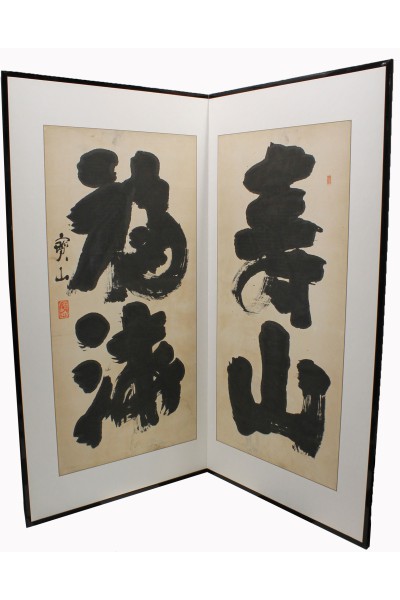 寿山
福海
寶山